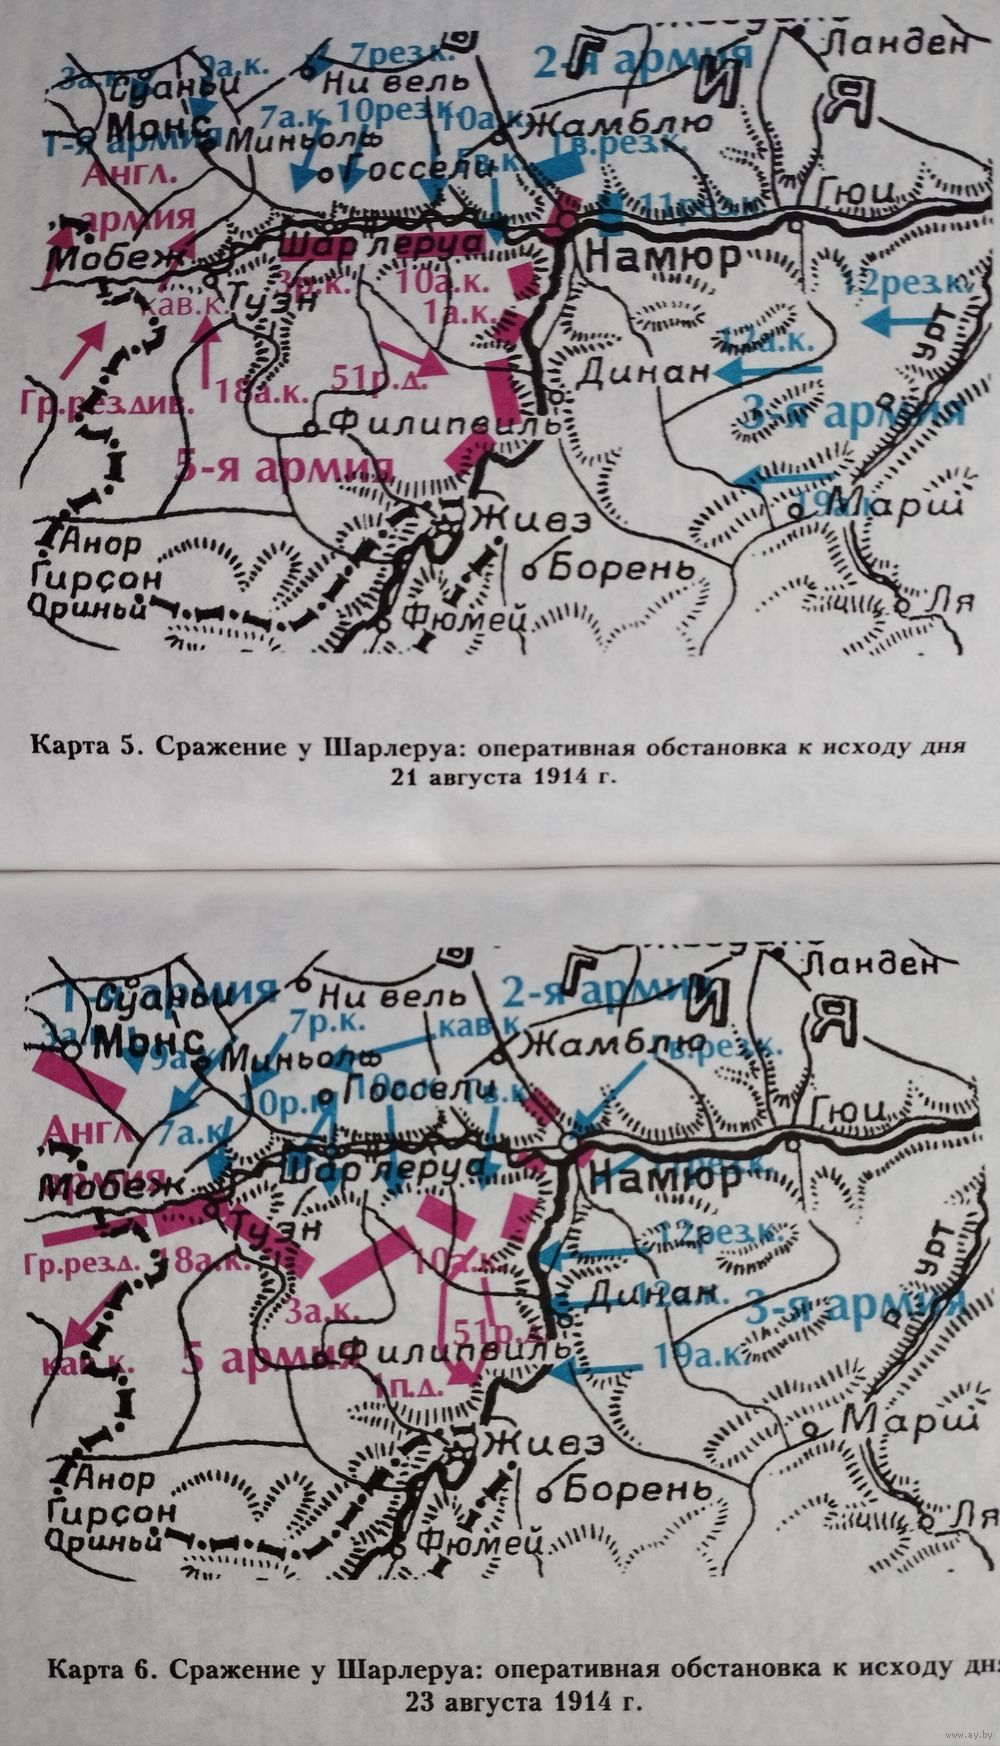 Ланден
2-я армия
7рез.к.
За.к.
9а.к.
Суаньи
Ни вель
Г
И
Я
7а.к.
10рез.к.
10а.к.
Жамблю
Монс
1-я армия
Миньоль
Гв.рез.к.
Гв.к.
Англ.
армия
Госсели
Гюи
11рез.к.
Шарлеруа
Намюр
Мобеж
Туэн
3р.к.
10а.к.
1а.к.
кав.к.
12рез.к.
р. Урт
12а.к.
Динан
51р.д.
18а.к.
Гр.рез.див.
3-я армия
Филипвиль
5-я армия
19а.к.
Марш
Живэ
Анор
Гирсон
Ориньй
Борень
Фюмей
Ля
Карта 5. Сражение у Шарлеруа: оперативная обстановка к исходу дня
21 августа 1914 г.
Ланден
1-я армия
Суаньи
Ни вель
2-я армия
Г
И
Я
За.к.
Монс
9а.к.
7р.к.
кав.к.
Миньоль
Жамблю
Гв.рез.к.
Госсели
10р.к.
Гв.к.
Гюи
Англ.
армия
7а.к.
Шарлеруа
Намюр
Мобеж
Туэн
12рез.к.
Гр.рез.д.
18а.к.
10а.к.
р. Урт
Динан
12а.к.
3-я армия
За.к.
51р.д.
кав.к.
5 армия
Филипвиль
19а.к.
1п.д.
Марш
Живэ
Анор
Гирсон
Ориньй
Борень
Фюмей
Ля
Карта 6. Сражение у Шарлеруа: оперативная обстановка к исходу дня
23 августа 1914 г.
www.ay.by